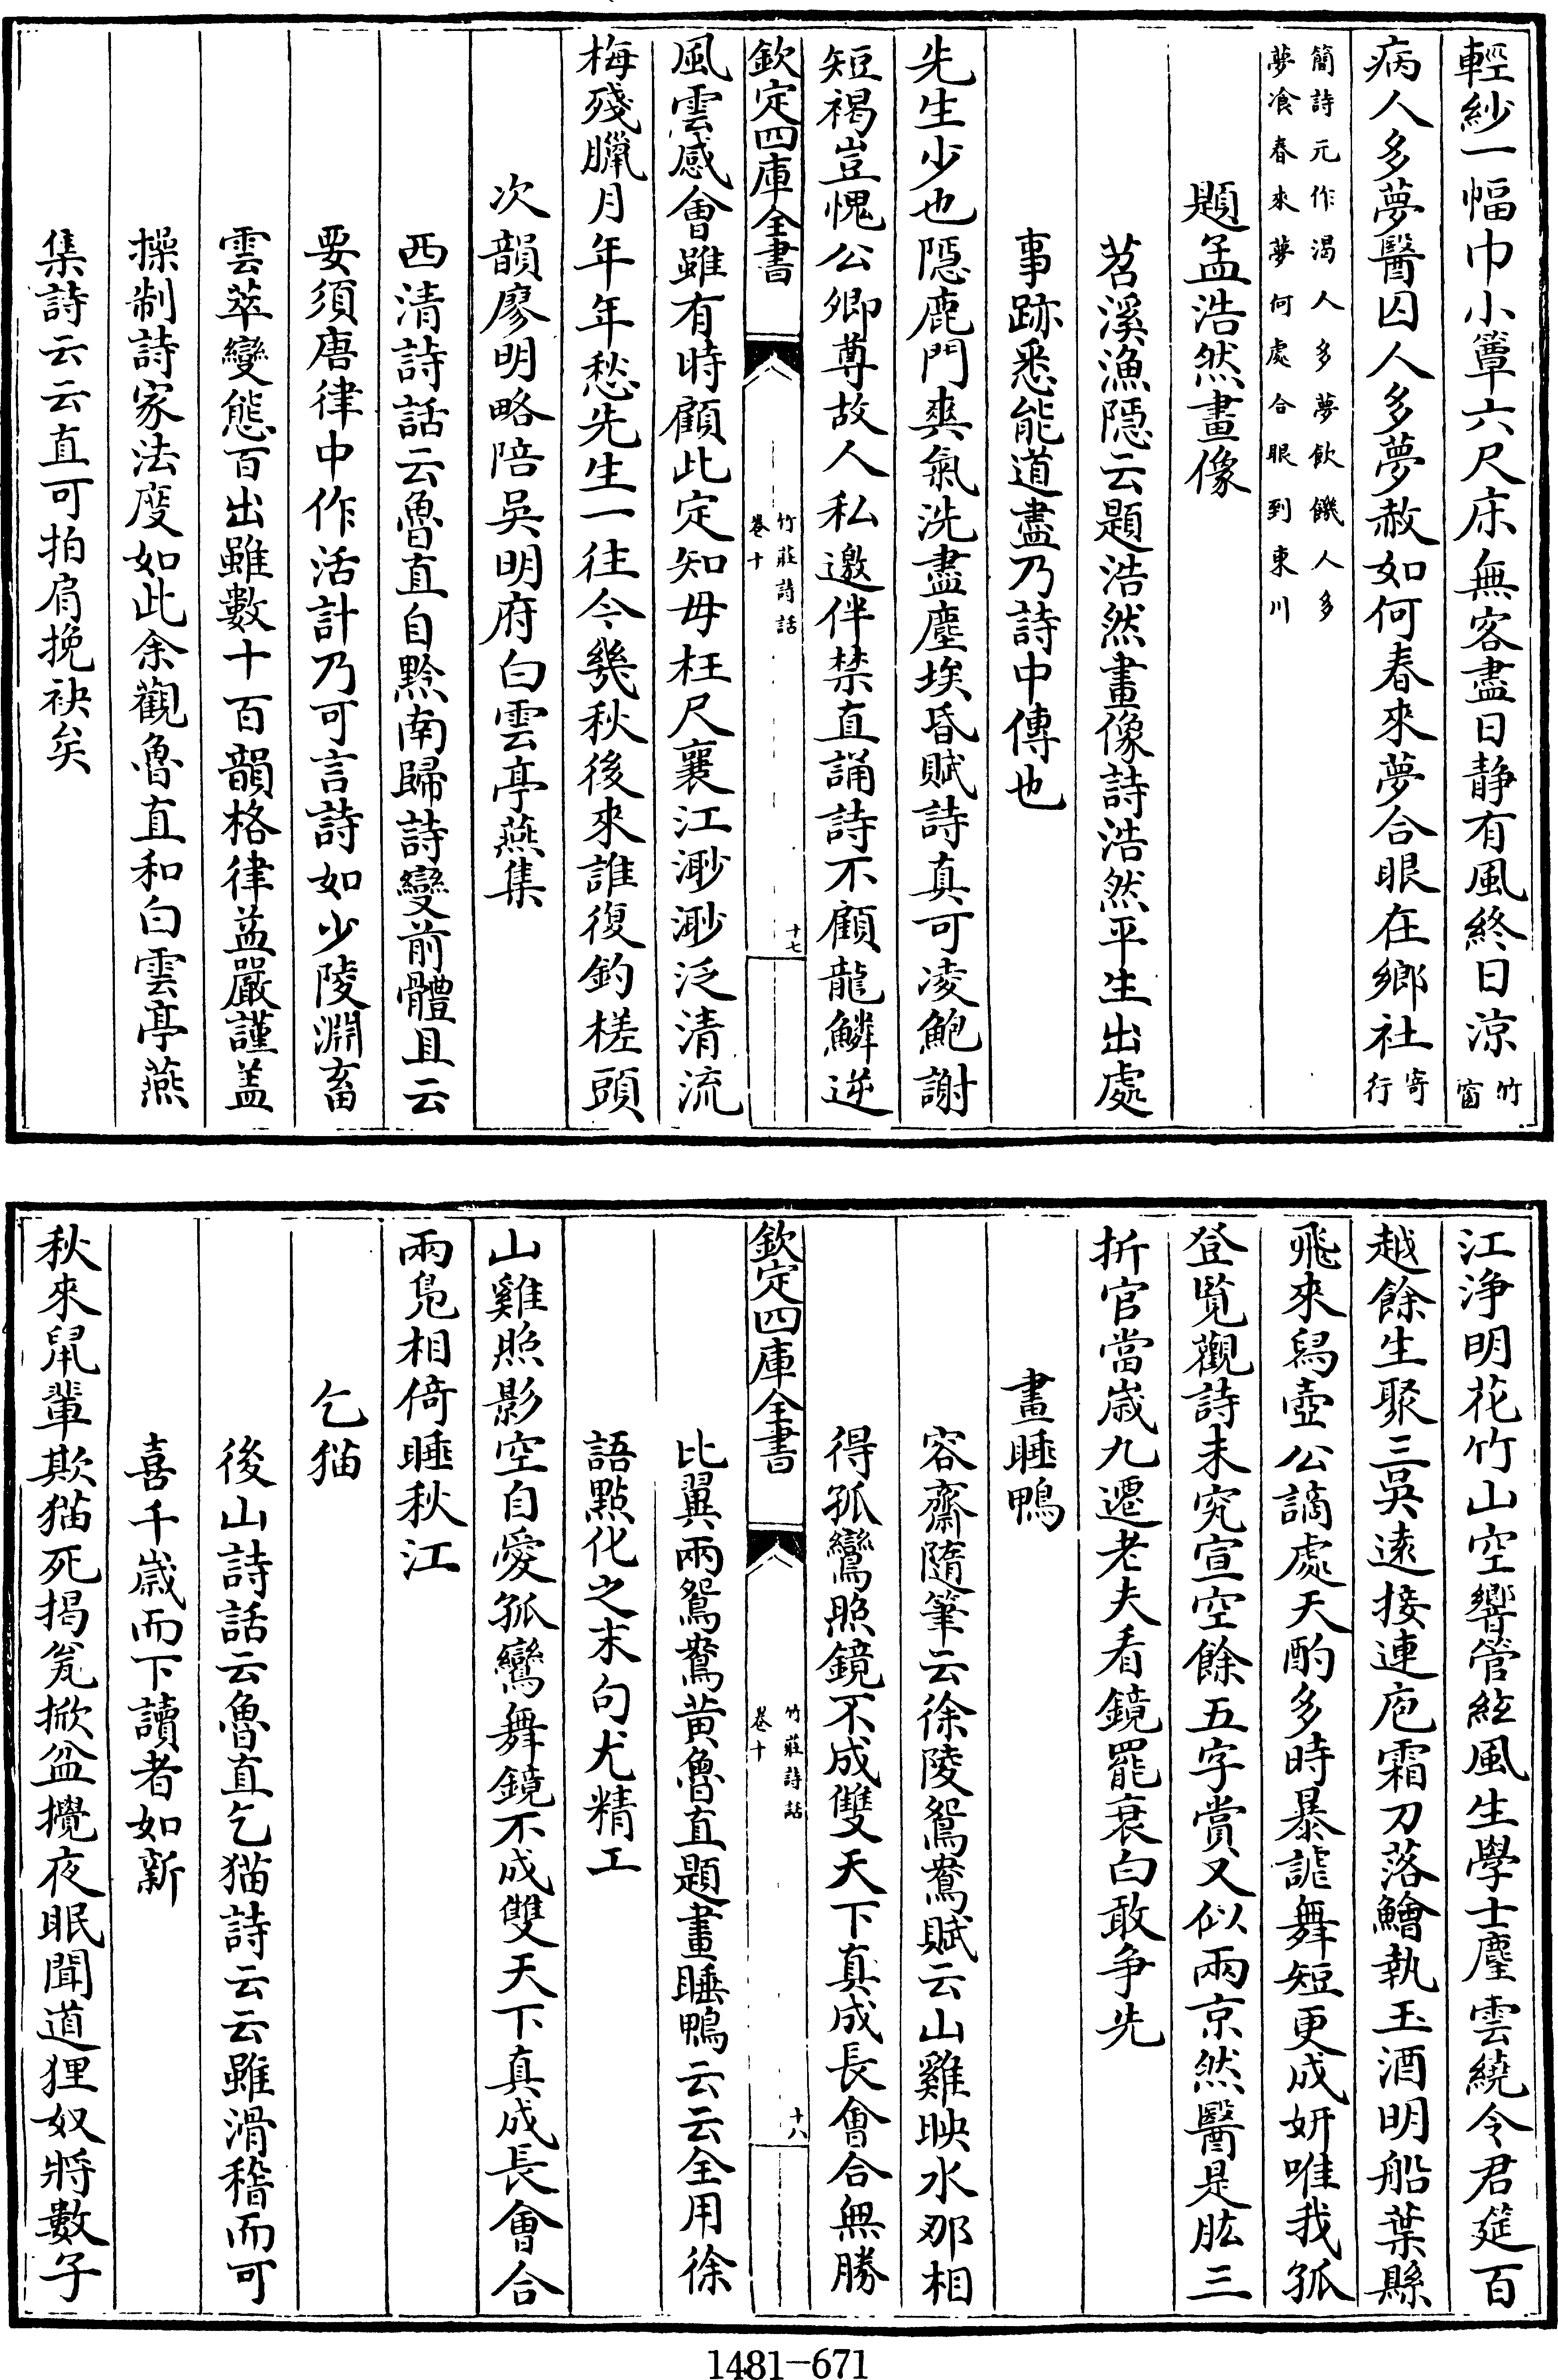 輕紗一幅巾小簟六尺床無客盡日靜有風終日涼竹窗
病人多夢醫囚人多夢赦如何春來夢合眼在鄉社寄行
簡詩元作渴人多夢飲饑人多
夢飡春來夢何處合眼到東川
題孟浩然畫像
苕溪漁隱云題浩然畫像詩浩然平生出處
事跡悉能道盡乃詩中傳也
先生少也隱鹿門爽氣洗盡塵埃昏賦詩真可凌鮑謝
短褐豈愧公卿尊故人私邀伴禁直誦詩不顧龍鱗逆
欽定四庫全書
竹莊詩話
卷十
十七
風雲感會雖有時顧此定知毋枉尺襄江渺渺泛清流
梅殘臘月年年愁先生一往今幾秋後來誰復釣槎頭
次韻廖明略陪吳明府白雲亭燕集
西清詩話云魯直自黔南歸詩變前體且云
要須唐律中作活計乃可言詩如少陵淵畜
雲萃變態百出雖數十百韻格律益嚴謹盖
操制詩家法度如此余觀魯直和白雲亭燕
集詩云云直可拍肩挽袂矣
江浄明花竹山空響管絃風生學士麈雲繞令君筵百
越餘生聚三吳逺接連庖霜刀落鱠執玉酒明船葉縣
飛來舄壺公謫處天酌多時暴謔舞短更成妍唯我孤
登覧觀詩未究宣空餘五字賞又似兩京然醫是肱三
折官當嵗九遷老夫看鏡罷衰白敢争先
畫睡鴨
容齋隨筆云徐陵鴛鴦賦云山雞映水那相
得孤鸞照鏡不成雙天下真成長會合無勝
欽定四庫全書
竹莊詩話
卷十
十八
比翼兩鴛鴦黄魯直題畫睡鴨云云全用徐
語點化之末句尤精工
山雞照影空自愛孤鸞舞鏡不成雙天下真成長會合
兩鳬相倚睡秋江
乞猫
後山詩話云魯直乞猫詩云云雖滑稽而可
喜千嵗而下讀者如新
秋來鼠輩欺猫死掲瓮掀盆攪夜眠聞道狸奴將數子
1481—671